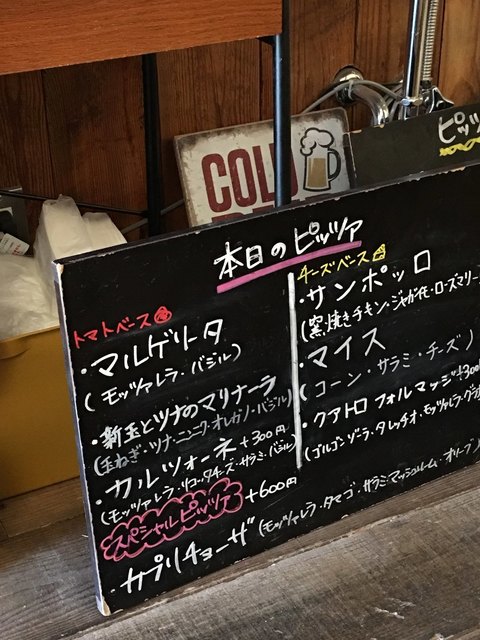 COLD
ピッツ
本日のピッツァ
トマトベース
・マルゲリータ
(モッツァレラ・バジル)
・新玉とツナのマリナーラ
(玉ねぎ・ツナ・ニンニク・オレガノ・バジル)
・カルツォーネ +300円
(モッツァレラ・リコッタチーズ・サラミ・バジル)
チーズベース
・サンポッロ
(窯焼きチキン・ジャガイモ・ローズマリー
・マイス
(コーン・サラミ・チーズ)
・クアトロフォルマッジ+300
(ゴルゴンゾーラ・タレッチオ・モッツァレラ・グラナ
スペシャルピッツァ +600円
・カプリチョーザ (モッツァレラ・タマゴ・サラミ・マッシュルーム・オリーブ)